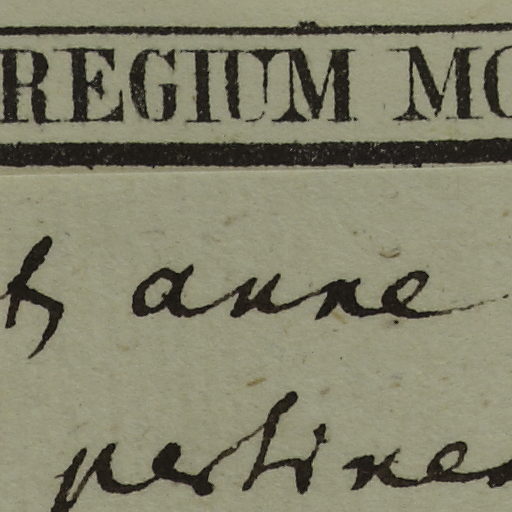 REGIUM MO
t, anne
pertinea